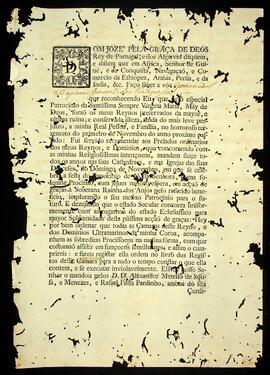 DOM JOZE PELA GRAÇA DE DEOS
Rey de Portugal, e dos Algarves daquem,
e dalém mar em Africa, Senhor de Gui-
né, e da Conquista, Navegação, e Co-
mercio da Ethiopia, Arabia, Persia, e da
India, &c. Faço saber a vós
que reconhecendo Eu, que do especial
Patrocinio da Santissima Virgem Maria, Mãy
de Deos, forão os meus Reynos preservados
ruina; e concedida illeza, ainda do mais leve pre-
juizo, a minha Real Pessoa, e Familia, no horroroso ter-
remoto do primeiro de Novembro do anno proximo pas-
sado: Fui servido recomendar aos Prelados
dos meus Reynos, e Dominios, que concorrendo
com as minhas Religiosissimas intençoens, mandem fazer to-
dos os annos nas suas Cathedraes, e nas Igrejas das suas
Dioceses, no Domingo de Novembro, em que se
a festa do Patrocinio da mesma Senhora, huma so-
lemne Procissão, em acção de
graças à Soberana Rainha dos Anjos pelo referido bene-
ficio, implorando o seu mesmo Patrocinio para o fu-
turo. E desejando que o estado Secular concorra
do estado Ecclesiastico para
mayor Solemnidade desta pissima acção de graças: Hey
por bem ordenar que todas as Camaras deste Reyno, e
dos Dominios Ultramarinos da minha Coroa, acompa-
nhem as sobreditas Procissoens na mesma fórma, com que
costumão assistir em funçoens similhantes, e assim o cum-
prireis; e fareis registar esta ordem no livro dos Regis-
tos dessa Camara para a todo o tempo constar o que ella
contém, e se executar inviolavelmente. ElRey nosso Se-
nhor o mandou pelos D.D. Alexandre Metello de Sou-
sa, e Menezes, e Rafael Pires Pardinho, ambos do seu
Conse-